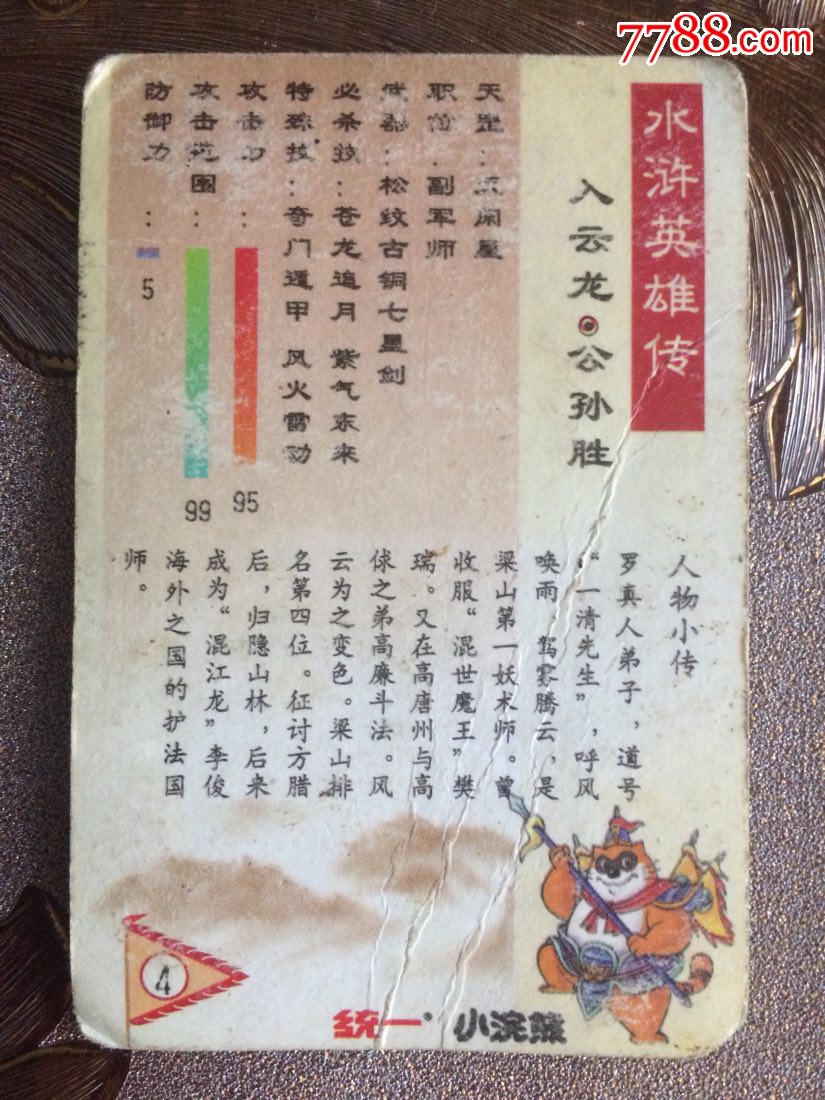 7788.com
水浒英雄传
入云龙·公孙胜
天罡：天闲星
职位：副军师
武器：松纹古铜七星剑
必杀技：苍龙追月 紫气东来
特殊技：奇门遁甲 风火雷动
攻击力：95
攻击范围：99
防御力：5
人物小传
罗真人弟子，道号
“一清先生”，呼风
唤雨 驾雾腾云，是
梁山第一妖术师。曾
收服“混世魔王”樊
瑞。又在高唐州与高
俅之弟高廉斗法。风
云为之变色。梁山排
名第四位。征讨方腊
后，归隐山林，后来
成为“混江龙”李俊
海外之国的护法国
师。
4
统一 小浣熊